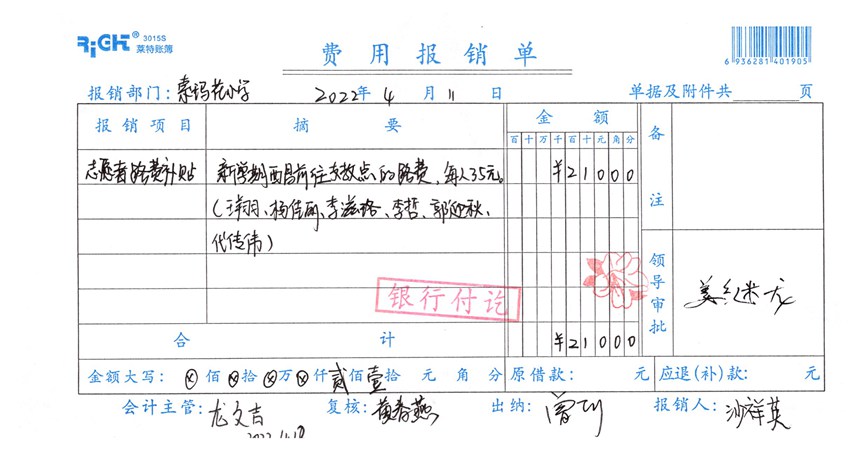 RiGHT® 3015S 莱特账簿
费用报销单
6 936281 401905
报销部门：索玛花小学 2022年 4月 11日 单据及附件共 页
报销项目 摘要 金额 备注
百十万千百十元角分
志愿者路费补贴 新学期西昌前往支教点的路费，每人35元。 ¥21000
（王韩羽、杨佳丽、李滋珞、李哲、郭迎秋、
代传伟）
银行付讫
领导审批
合计 ¥21000
金额大写：ⓧ佰ⓧ拾ⓧ万ⓧ仟贰佰壹拾 元 角 分 原借款： 元 应退(补)款： 元
会计主管：龙文吉 复核：黄春燕 出纳：曾 报销人：沙祥英
2022.4.18